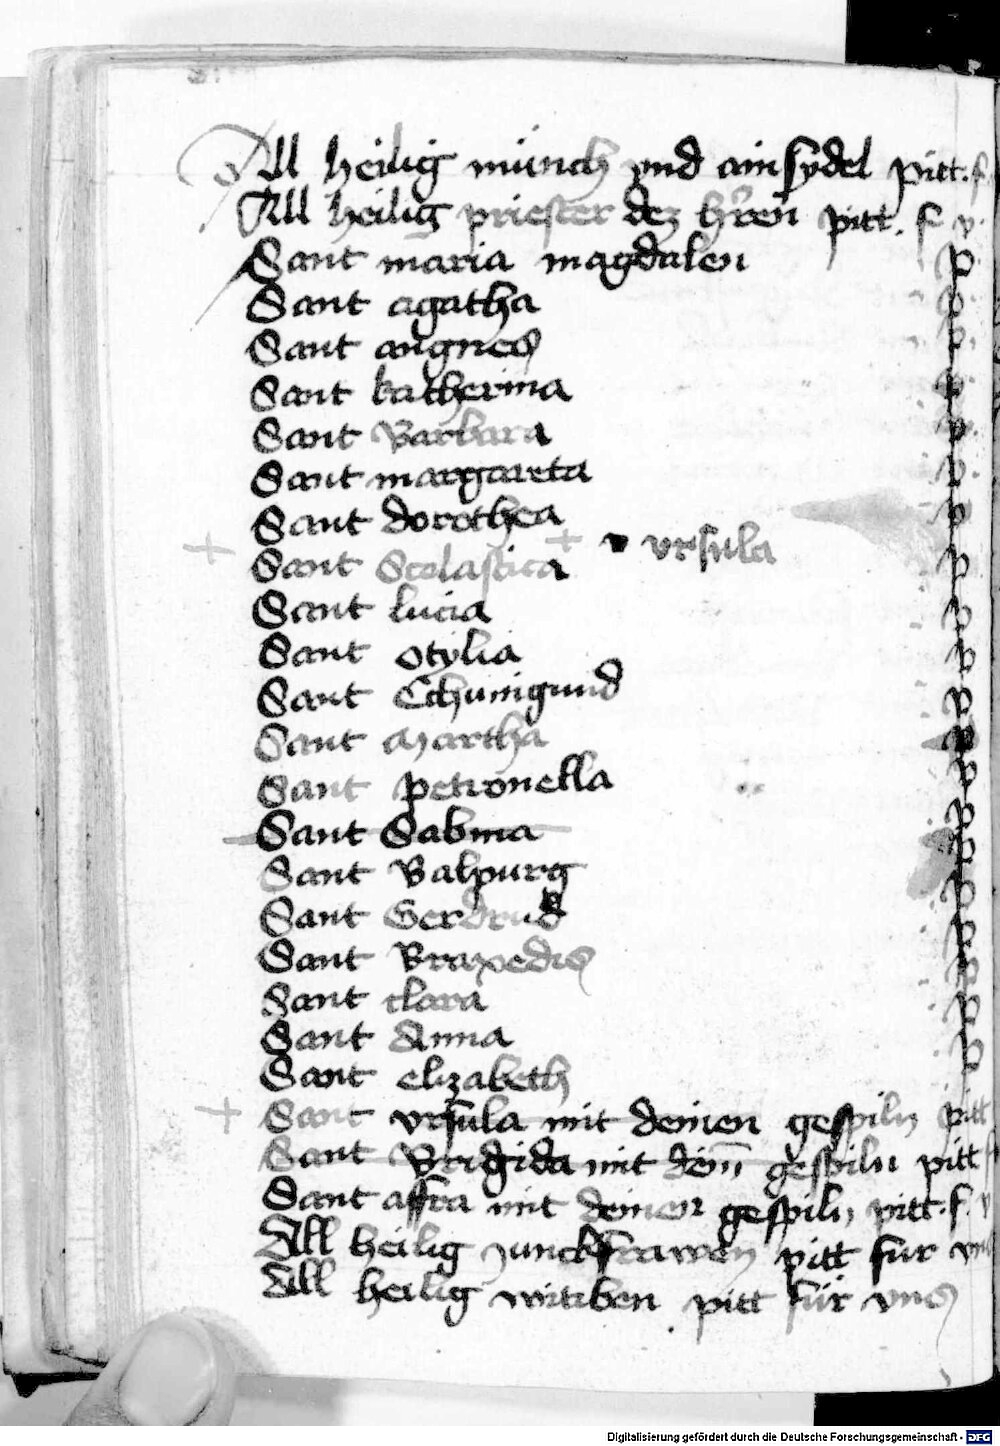 All heilig münch vnd ainsydel pitt. f
All heilig priester dez h'ren pitt. f v.
Sant maria magdalen p
Sant agatha p
Sant angnes p
Sant katherina p
Sant Barbara p
Sant margareta p
Sant dorothea p
+ Sant Scolastica + vrsula p
Sant lucia p
Sant otylia p
Sant Chunigund p
Sant Martha p
Sant petronella p
Sant Sabina p
Sant Balpurg p
Sant Gerdrud p
Sant Braxedis p
Sant clara p
Sant Anna p
Sant elizabeth p
+ Sant vrsula mit deinen gespiln pitt
Sant Brigida mit dein̄ gespiln pitt f
Sant affra mit deinen gespiln pitt. f. v
All heilig junckfrawen pitt fur vns
All heilig witiben pitt für vns
Digitalisierung gefördert durch die Deutsche Forschungsgemeinschaft - DFG